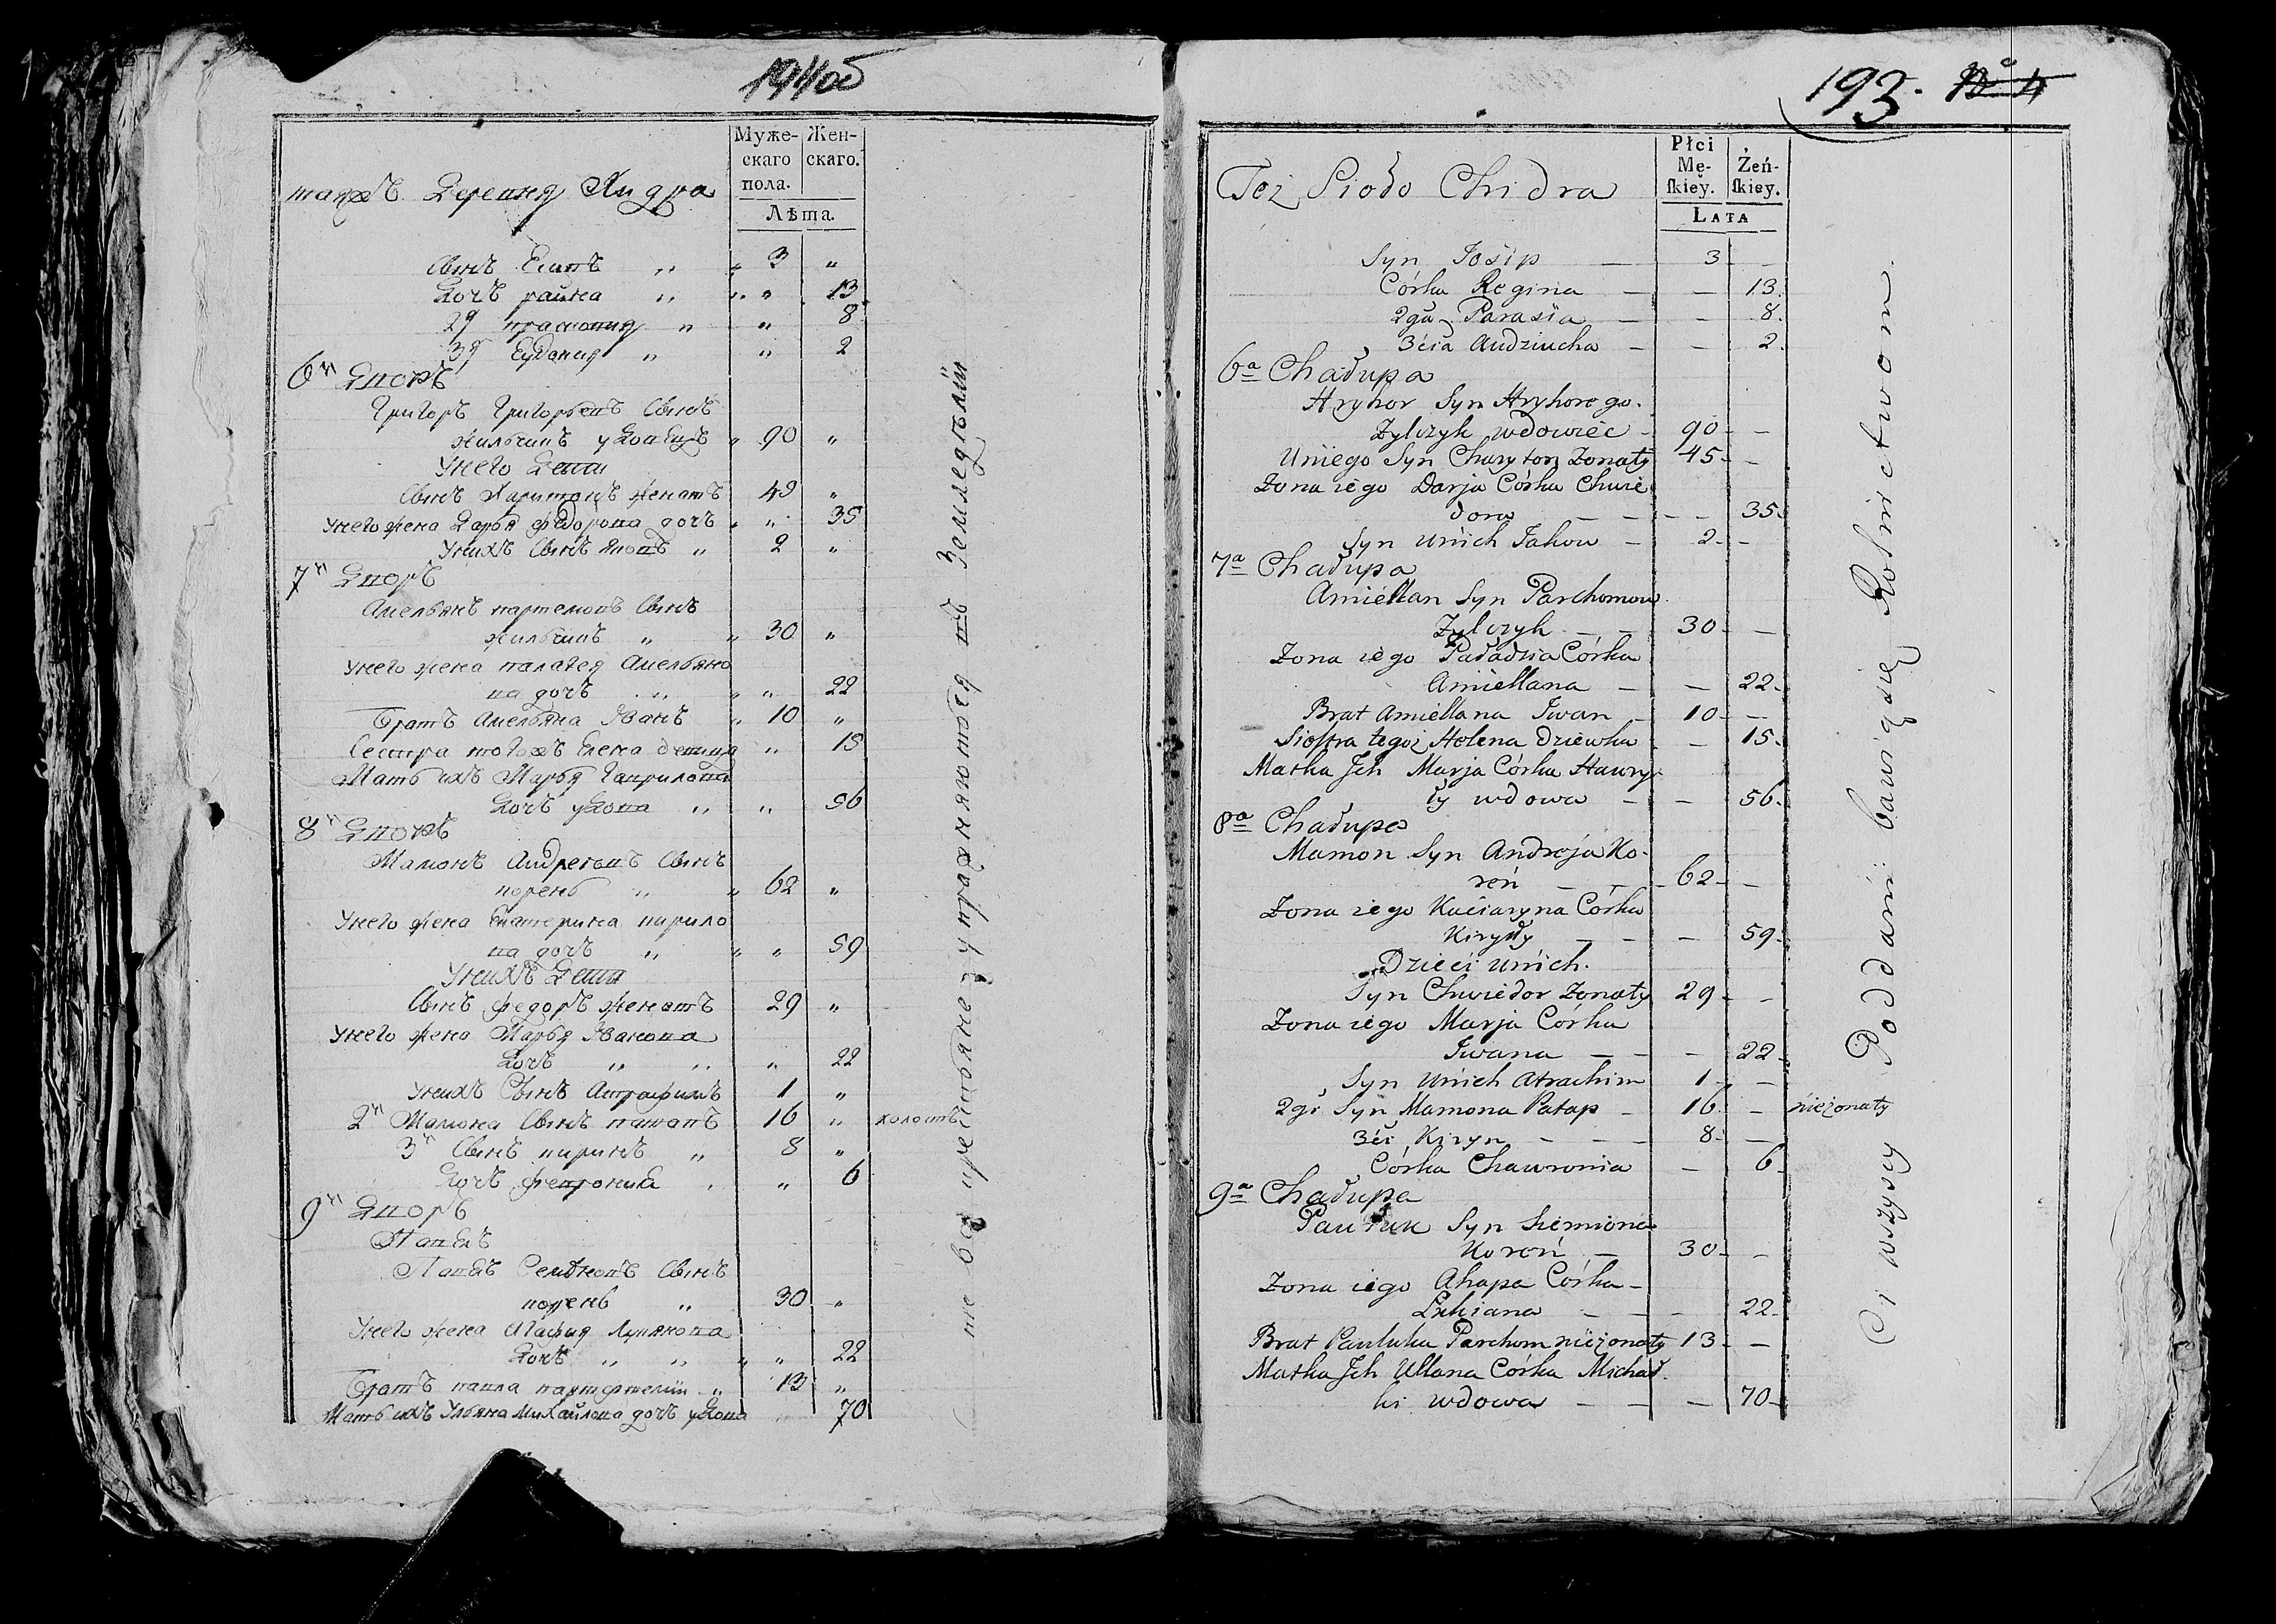 194об
Муже-
скаго
пола.
Жен-
скаго.
Лѣта.
таяжъ Деревня Хидра
Сынъ Есипъ „ „ 3 „
Дочь райна „ „ „ 13
2я прасковия „ „ 8
3я Евдокия „ „ 2
6й Дворъ
Григоръ Григорьевъ Сынъ
жильчикъ удовецъ „ 90 „
Унего Дети
Сынъ Харитонъ женатъ 49 „
Унего жена Дарья федорова дочь „ „ 35
Унихъ Сынъ яковъ „ 2 „
7й Дворъ
Амельянъ пархемовъ Сынъ
жильчикъ „ „ 30 „
Унего жена палагея Амельяно
ва дочь „ „ „ 22
Братъ Амельяна Иванъ „ 10 „
Сестра тогожъ Елена девица „ 15
Мать ихъ Марья Гаврилова
Дочь удова „ „ 56
8й Дворъ
Мамонъ Андреевъ Сынъ
корень „ „ 62 „
Унего жена Екатерина кирило
ва дочь „ „ „ 59
Унихъ Дети
Сынъ федоръ женатъ 29 „
Унего жена Марья Иванова
Дочь „ „ „ 22
Унихъ Сынъ 1 „
2й Мамона Сынъ 16 „ холостъ
3й Сынъ „ 8 „
Дочь феврония „ „ 6
9й Дворъ
Павелъ Семеновъ Сынъ
корень „ 30 „
Унего жена Агафия Лукянова
Дочь „ „ „ „ 22
Братъ павла „ 13 „
Мать ихъ Ульяна Михайлова дочь удова „ 70
те все крестьяне упражняются въ Земледелии
193.
Płci
Mę-
skiey.
Żeń-
skiey.
Lata
Toż Sioło Chidra
Syn Josip — 3 —
Córka Regina — — 13.
2ga Parasia — — 8.
3cia Audziucha — — 2.
6a Chałupa
Hryhor Syn Hryhorego.
Zylczyk wdowiec — 90 — —
Uniego Syn Charyton Żonaty 45 —
Żona iego Darja Córka Chwie
dora — — — 35.
Syn Unich Jakow — 2 —
7a Chałupa
Amiellan Syn Parchomow
Zylczyk — — 30 — —
Żona iego Paładzia Córka
Amiellana — — 22 —
Brat Amiellana Iwan — 10 — —
Siostra tegoż Helena dziewka — 15.
Matka Jch Marja Córka Hawry-
ły wdowa — — 56.
8a Chałupa
Mamon Syn Andreja Ko-
reń — — 62 — —
Żona iego Kaciaryna Córka
Kiryły — — — 59 —
Dzieci Unich.
Syn Chwiedor Żonaty 29 — —
Żona iego Marja Córka
Iwana — — — 22 —
Syn Unich Atrachim 1 — —
2gi Syn Mamona Patap — 16. — nieżonaty
3ci Kiryn — — — 8 — —
Córka Chawronia — 6.
9a Chałupa
Pauluk Syn Siemiona
Koreń — 30 — —
Żona iego Ahapa Córka —
Łukiana — — — 22 —
Brat Pauluka Parchom nieżonaty 13 — —
Matka Jch Ullana Córka Michał.
ki wdowa — — — 70 —
Ci wszyscy Poddani bawią się Rolnictwom.